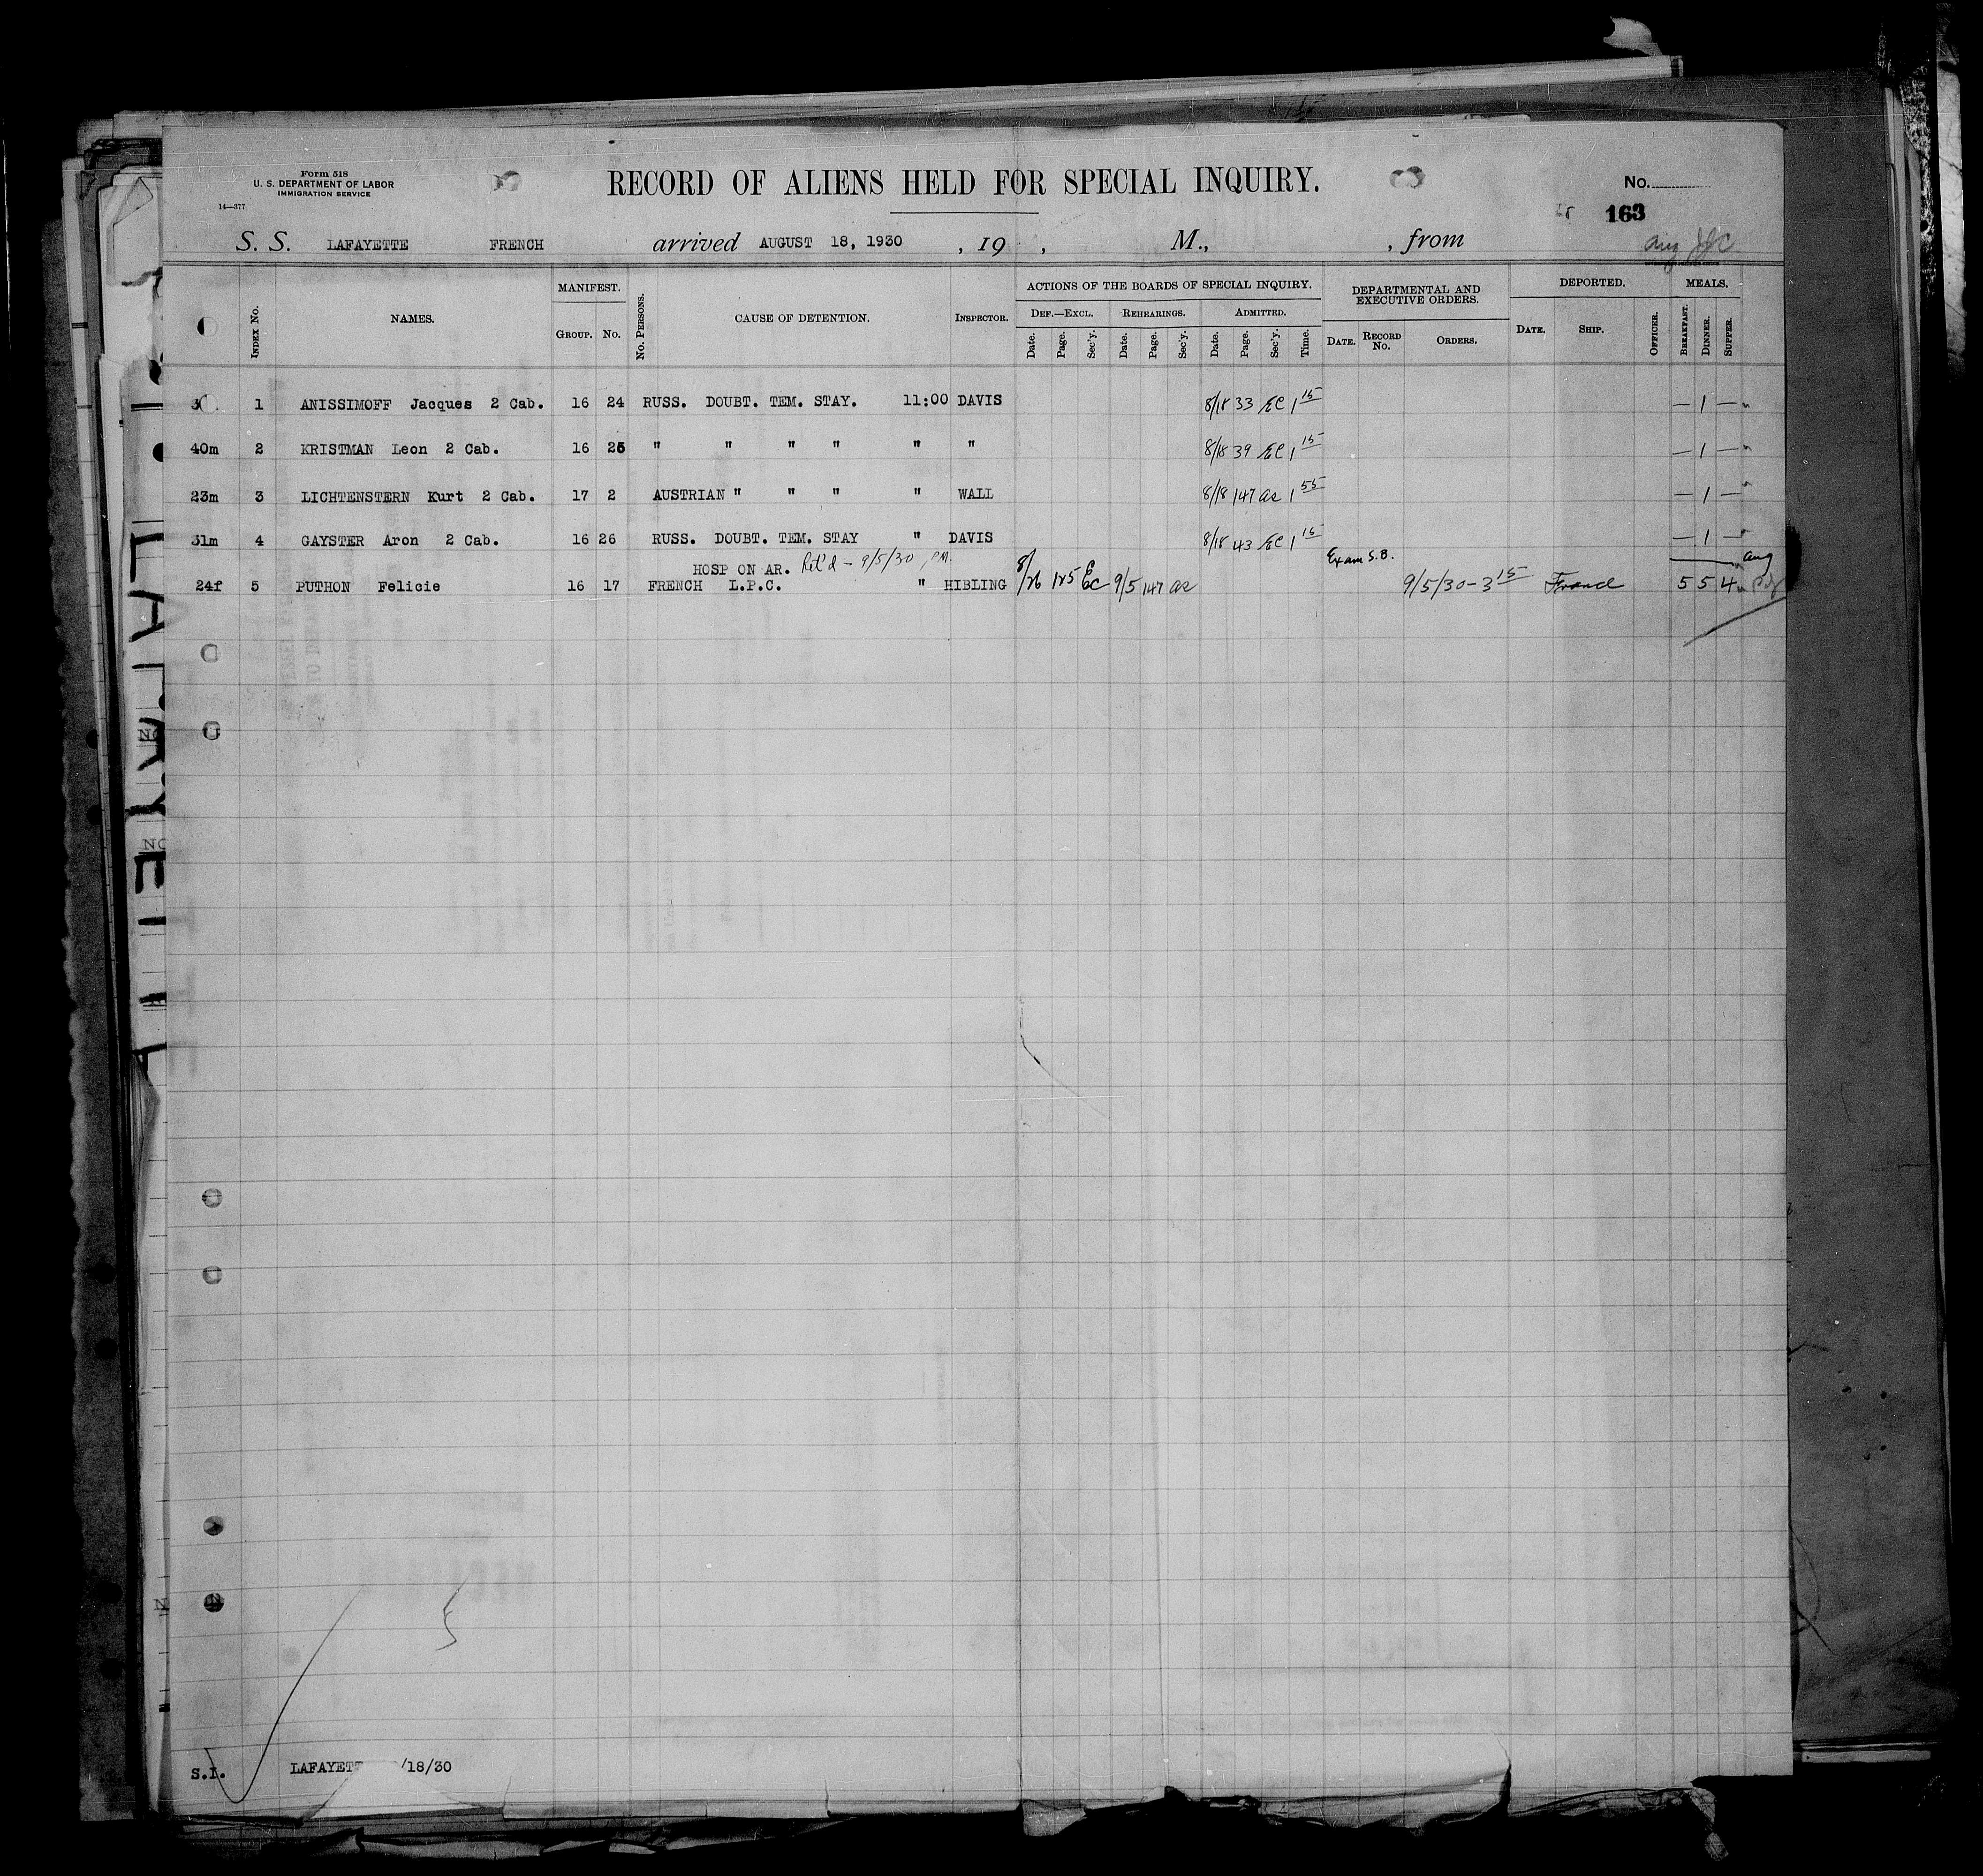 Form 518
U. S. DEPARTMENT OF LABOR
IMMIGRATION SERVICE
14—377
RECORD OF ALIENS HELD FOR SPECIAL INQUIRY.
No.
163
S. S. LAFAYETTE FRENCH arrived AUGUST 18, 1930 , 19 , M., , from
INDEX No. NAMES. MANIFEST. GROUP. No. No. PERSONS. CAUSE OF DETENTION. INSPECTOR. ACTIONS OF THE BOARDS OF SPECIAL INQUIRY. DEF.—EXCL. Date. Page. Sec'y. REHEARINGS. Date. Page. Sec'y. ADMITTED. Date. Page. Sec'y. Time. DEPARTMENTAL AND EXECUTIVE ORDERS. DATE. RECORD No. ORDERS. DEPORTED. DATE. SHIP. OFFICER. MEALS. BREAKFAST. DINNER. SUPPER.
1 ANISSIMOFF Jacques 2 Cab. 16 24 RUSS. DOUBT. TEM. STAY. 11:00 DAVIS 8/18 33 EC 1 15 — 1 —
40m 2 KRISTMAN Leon 2 Cab. 16 25 " " " " " " 8/18 39 EC 1 15 — 1 —
23m 3 LICHTENSTERN Kurt 2 Cab. 17 2 AUSTRIAN " " " " WALL 8/18 147 ac 1 55 — 1 —
31m 4 GAYSTER Aron 2 Cab. 16 26 RUSS. DOUBT. TEM. STAY " DAVIS 8/18 43 EC 1 15 — 1 —
HOSP ON AR. Ret'd - 9/5/30, P.M. Exam S.B.
24f 5 PUTHON Felicie 16 17 FRENCH L.P.C. " HIBLING 8/26 125 EC 9/5 147 ac 9/5/30 - 3 15 France 5 5 4
S.I. LAFAYET /18/30
LAFAYETTE